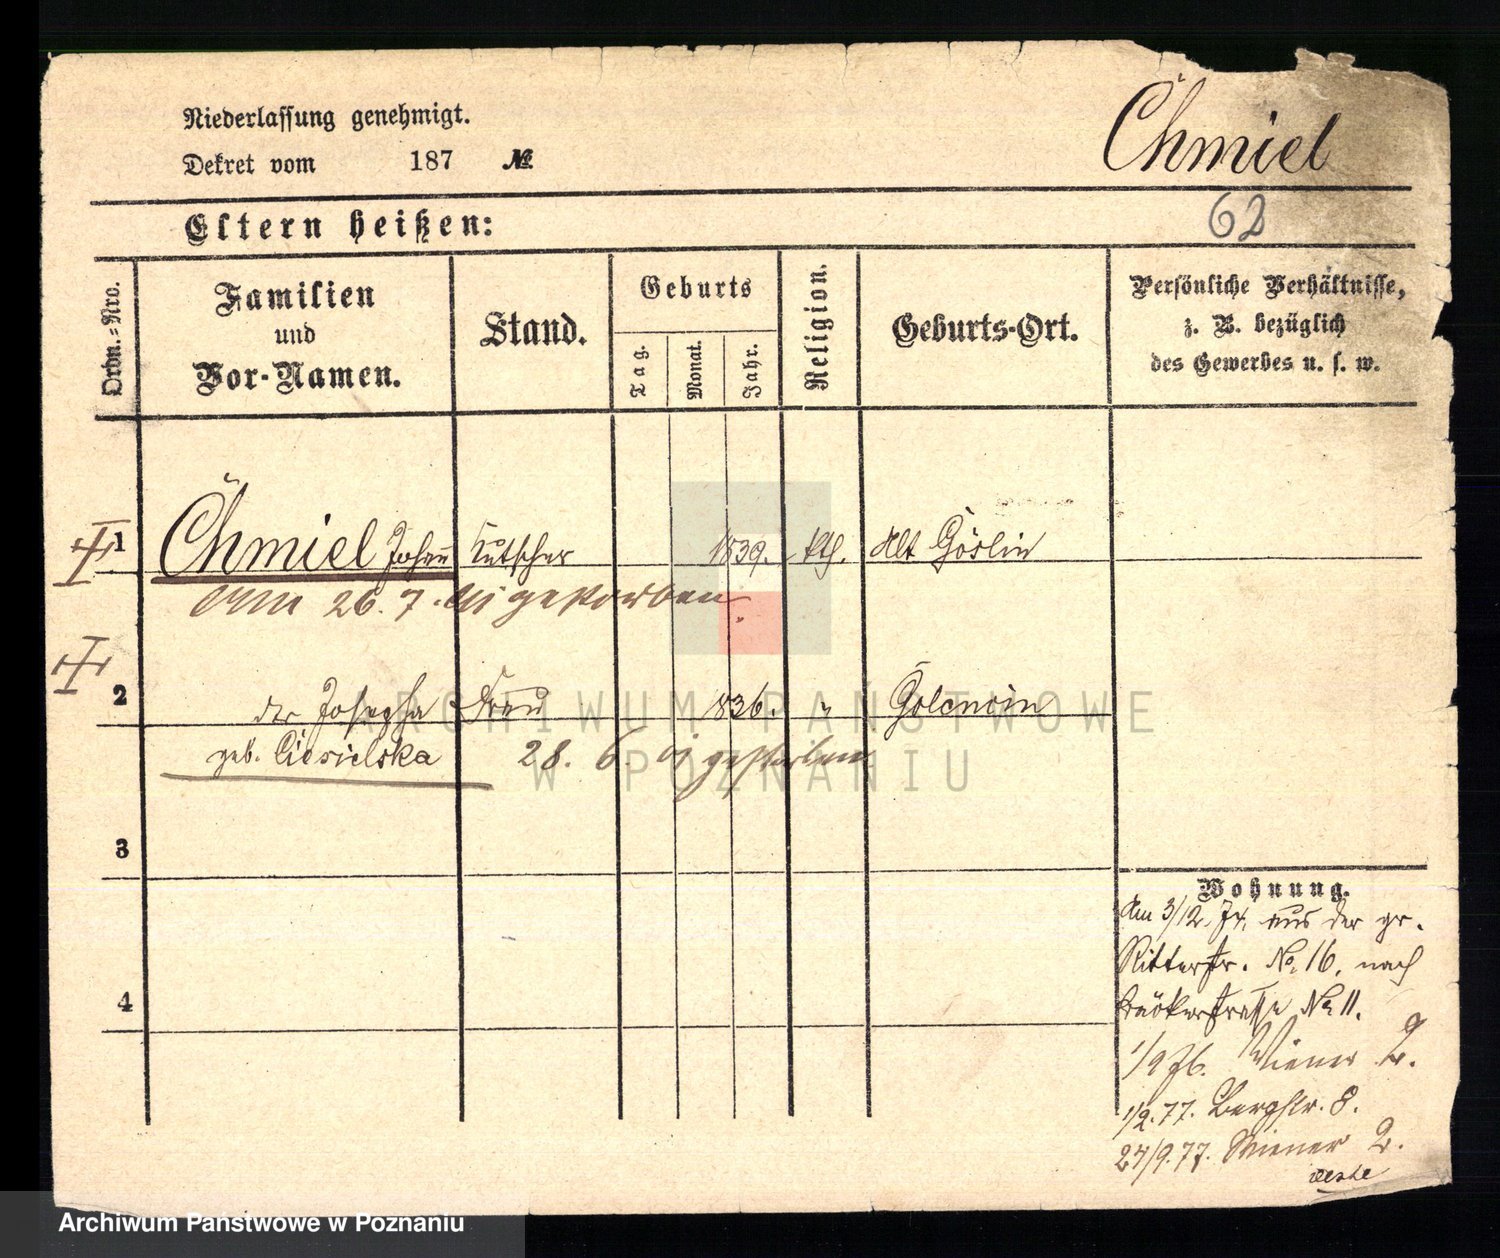 Niederlassung genehmigt.
Chmiel
Dekret vom 187 №
62
Eltern heißen:
Ordn.-Nro.
Familien
und
Vor-Namen.
Stand.
Geburts
Tag.
Monat.
Jahr.
Religion.
Geburts-Ort.
Persönliche Verhältnisse,
z. B. bezüglich
des Gewerbes u. s. w.
1 Chmiel Johann Kutscher 1839. kth. Alt Göslin
am 26. 7. gestorben
2 Josepha Frau 1836. " Golencin
geb. Ciesielska 28. 6. gestorben
3
4
Wohnung.
Am 3/12. 74. aus der gr.
Ritterstr. No. 16. nach
Bäckerstraße No 11.
1/9 76. Wiener 2.
1/2. 77. Bergstr. 8.
24/9. 77. Wiener 2.
ARCHIWUM PAŃSTWOWE
W POZNANIU
Archiwum Państwowe w Poznaniu